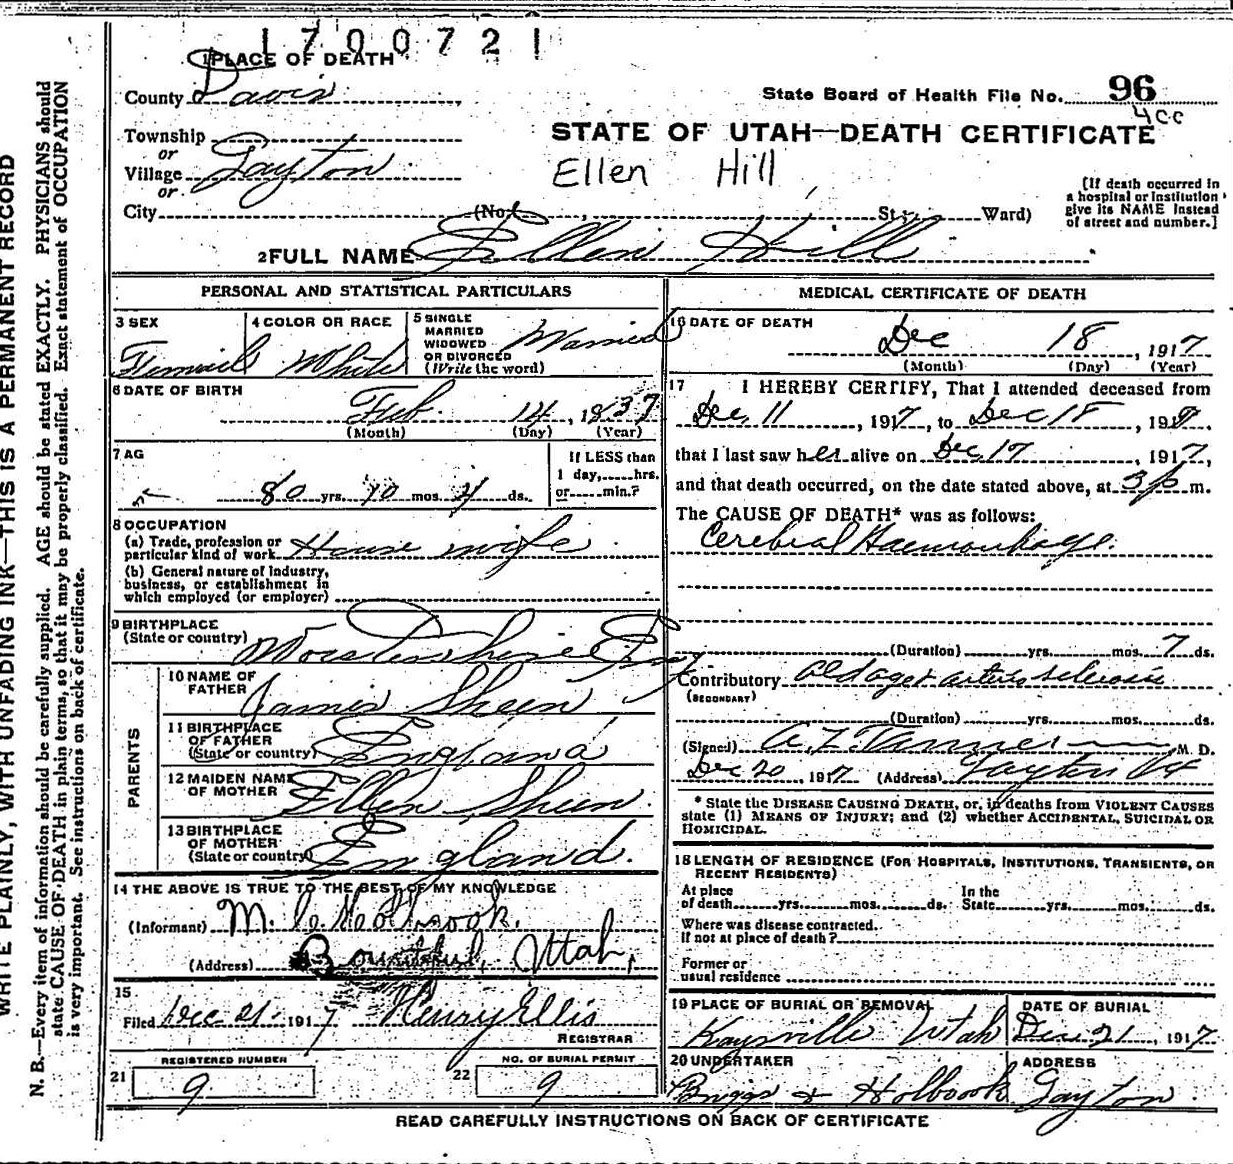 1700721
1 PLACE OF DEATH
County Davis
State Board of Health File No. 96
4cc
Township
or
Village Layton
or
STATE OF UTAH—DEATH CERTIFICATE
Ellen Hill
City (No. , St.; Ward)
[If death occurred in
a hospital or institution
give its NAME instead
of street and number.]
2 FULL NAME Ellen Hill
PERSONAL AND STATISTICAL PARTICULARS
3 SEX
Femail
4 COLOR OR RACE
White
5 SINGLE
MARRIED
WIDOWED
OR DIVORCED
(Write the word)
Married
6 DATE OF BIRTH
Feb. 14, 1837
(Month) (Day) (Year)
7 AG
80 yrs. 10 mos. 4 ds.
If LESS than
1 day,......hrs.
or......min.?
8 OCCUPATION
(a) Trade, profession or
particular kind of work House wife
(b) General nature of industry,
business, or establishment in
which employed (or employer)
9 BIRTHPLACE
(State or country) Eng
PARENTS
10 NAME OF
FATHER James Sheen
11 BIRTHPLACE
OF FATHER
(State or country) England
12 MAIDEN NAME
OF MOTHER Ellen Sheen
13 BIRTHPLACE
OF MOTHER
(State or country) England.
14 THE ABOVE IS TRUE TO THE BEST OF MY KNOWLEDGE
(Informant) M. Holbrook.
(Address) Bountiful, Utah,
15
Filed Dec 21 1917 Henry Ellis
REGISTRAR
REGISTERED NUMBER
21 9
NO. OF BURIAL PERMIT
22 9
MEDICAL CERTIFICATE OF DEATH
16 DATE OF DEATH
Dec 18, 1917
(Month) (Day) (Year)
17 I HEREBY CERTIFY, That I attended deceased from
Dec, 11, 1917, to Dec 18, 1917.
that I last saw her alive on Dec, 17, 1917,
and that death occurred, on the date stated above, at 3 p m.
The CAUSE OF DEATH* was as follows:
Cerebral Haemorrhage.
(Duration) yrs. mos. 7 ds.
Contributory old age & arterio sclerosis
(SECONDARY)
(Duration) yrs. mos. ds.
(Signed) A. Z. Tanner M. D.
Dec 20, 1917 (Address) Layton Ut
* State the DISEASE CAUSING DEATH, or, in deaths from VIOLENT CAUSES
state (1) MEANS OF INJURY; and (2) whether ACCIDENTAL, SUICIDAL OR
HOMICIDAL.
18 LENGTH OF RESIDENCE (FOR HOSPITALS, INSTITUTIONS, TRANSIENTS, OR
RECENT RESIDENTS)
At place
of death yrs. mos. ds.
In the
State yrs. mos. ds.
Where was disease contracted
If not at place of death?
Former or
usual residence
19 PLACE OF BURIAL OR REMOVAL
Kaysville Utah
DATE OF BURIAL
Dec 21, 1917
20 UNDERTAKER
Briggs & Holbrook
ADDRESS
Layton
READ CAREFULLY INSTRUCTIONS ON BACK OF CERTIFICATE
WRITE PLAINLY, WITH UNFADING INK—THIS IS A PERMANENT RECORD
N. B.—Every item of information should be carefully supplied. AGE should be stated EXACTLY. PHYSICIANS should
state CAUSE OF DEATH in plain terms, so that it may be properly classified. Exact statement of OCCUPATION
is very important. See instructions on back of certificate.